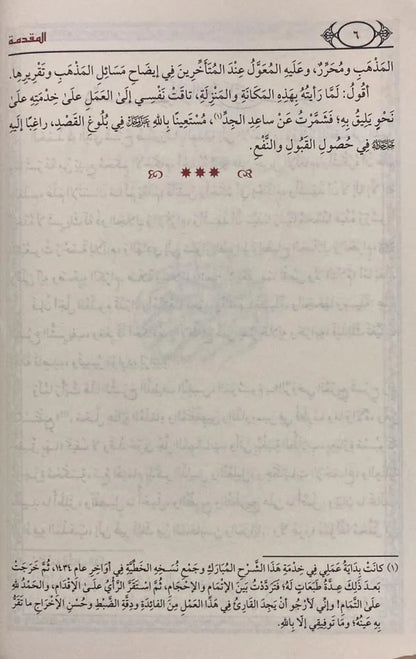 المقدمة
٦
المَذْهَبِ ومُحَرِّرُ، وعَلَيهِ المُعَوَّلُ عِنْدَ المُتَأخِّرِينَ فِي إيضَاحِ مَسَائِلِ المَذْهَبِ وتَقْرِيرِها.
أقُولُ: لَمَّا رَأيتُهُ بِهَذِهِ المَكَانَةِ والمَنْزِلَةِ، تاقَتْ نَفْسِي إلَىٰ العَمَلِ عَلَىٰ خِدْمَتِهِ عَلَىٰ
نَحْوٍ يَلِيقُ بِهِ؛ فَشَمَّرْتُ عَنْ ساعِدِ الجِدِّ(١)، مُسْتَعِينًا بِاللهِ فِي بُلُوغِ القَصْدِ، راغِبًا إلَيهِ
فِي حُصُولِ القَبُولِ والنَّفْعِ.
(١) كانَتْ بِدَايَةُ عَمَلِي فِي خِدْمَةِ هَذَا الشَّرْحِ المُبَارَكِ وجَمْعِ نُسَخِهِ الخَطِّيَّةِ فِي أوَاخِرِ عَامِ ١٤٣٤، ثُمَّ خَرَجَتْ
بَعْدَ ذَلِكَ عِدَّةُ طَبَعَاتٍ لَهُ؛ فَتَرَدَّدْتُ بَيْنَ الإتْمَامِ والإحْجَامِ، ثُمَّ اسْتَقَرَّ الرَّأيُ عَلَىٰ الإقْدَامِ، والحَمْدُ للهِ
عَلَىٰ التَّمَامِ! وإنِّي لَأرْجُو أنْ يَجِدَ القَارِئُ فِي هَذَا العَمَلِ مِنَ الفَائِدَةِ ودِقَّةِ الضَّبْطِ وحُسْنِ الإخْرَاجِ ما تَقَرُّ
بِهِ عَيْنُهُ؛ ومَا تَوفِيقِي إلَّا بِاللهِ.